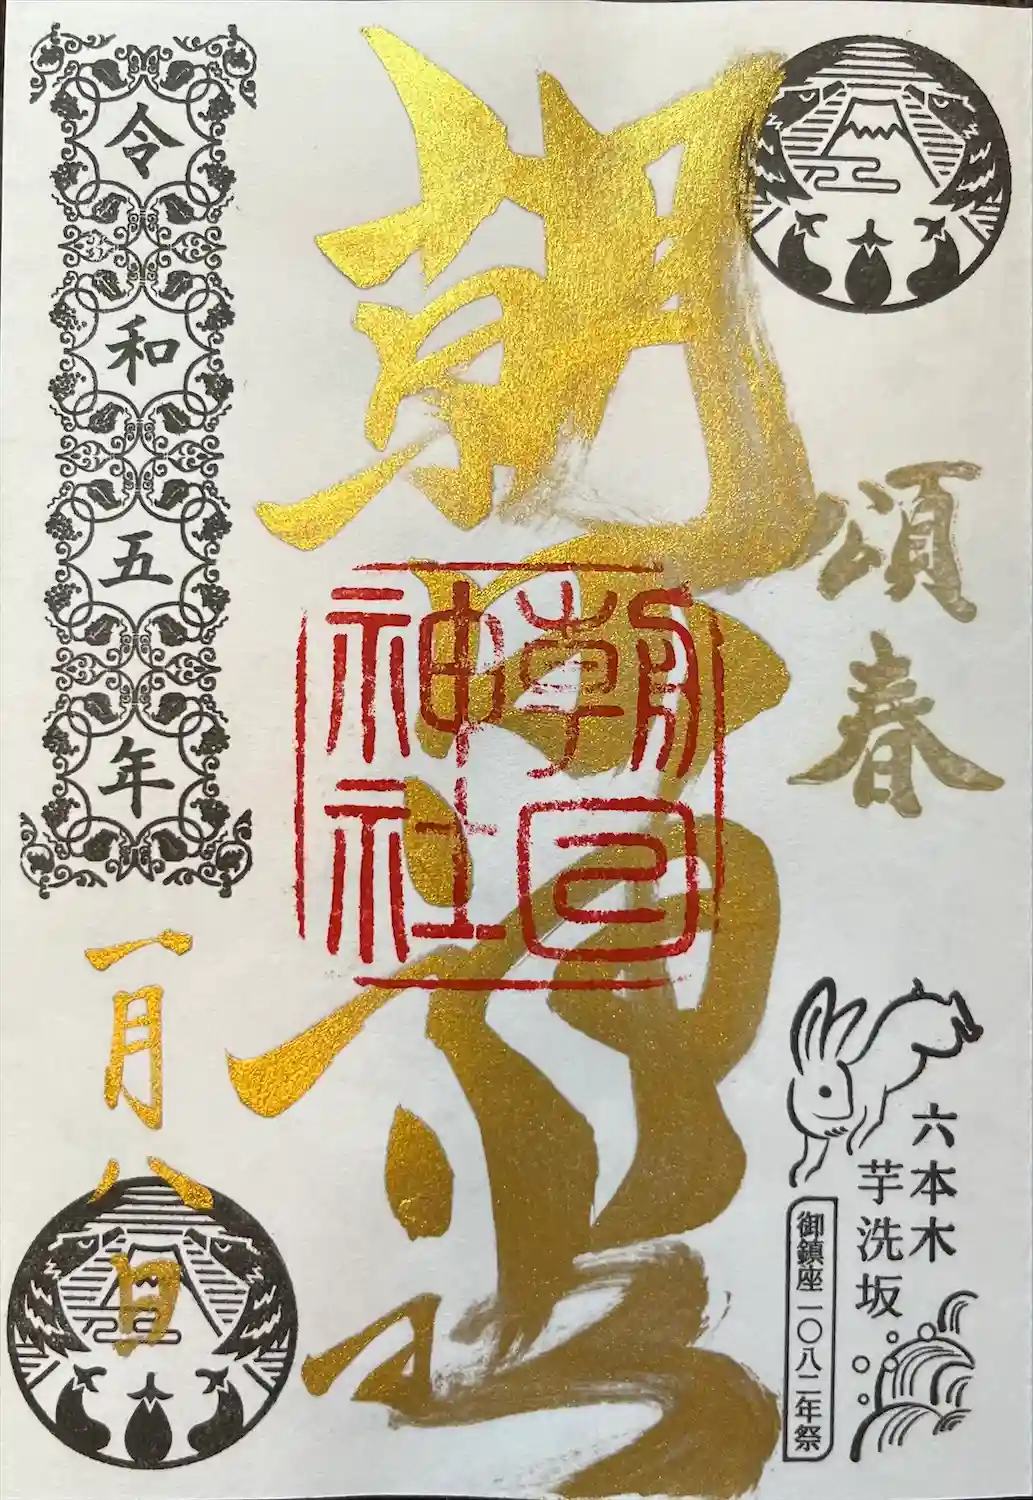 頌春
六本木
芋洗坂
御鎮座一〇八二年祭
朝日神社
朝日神社
令和五年
一月八日